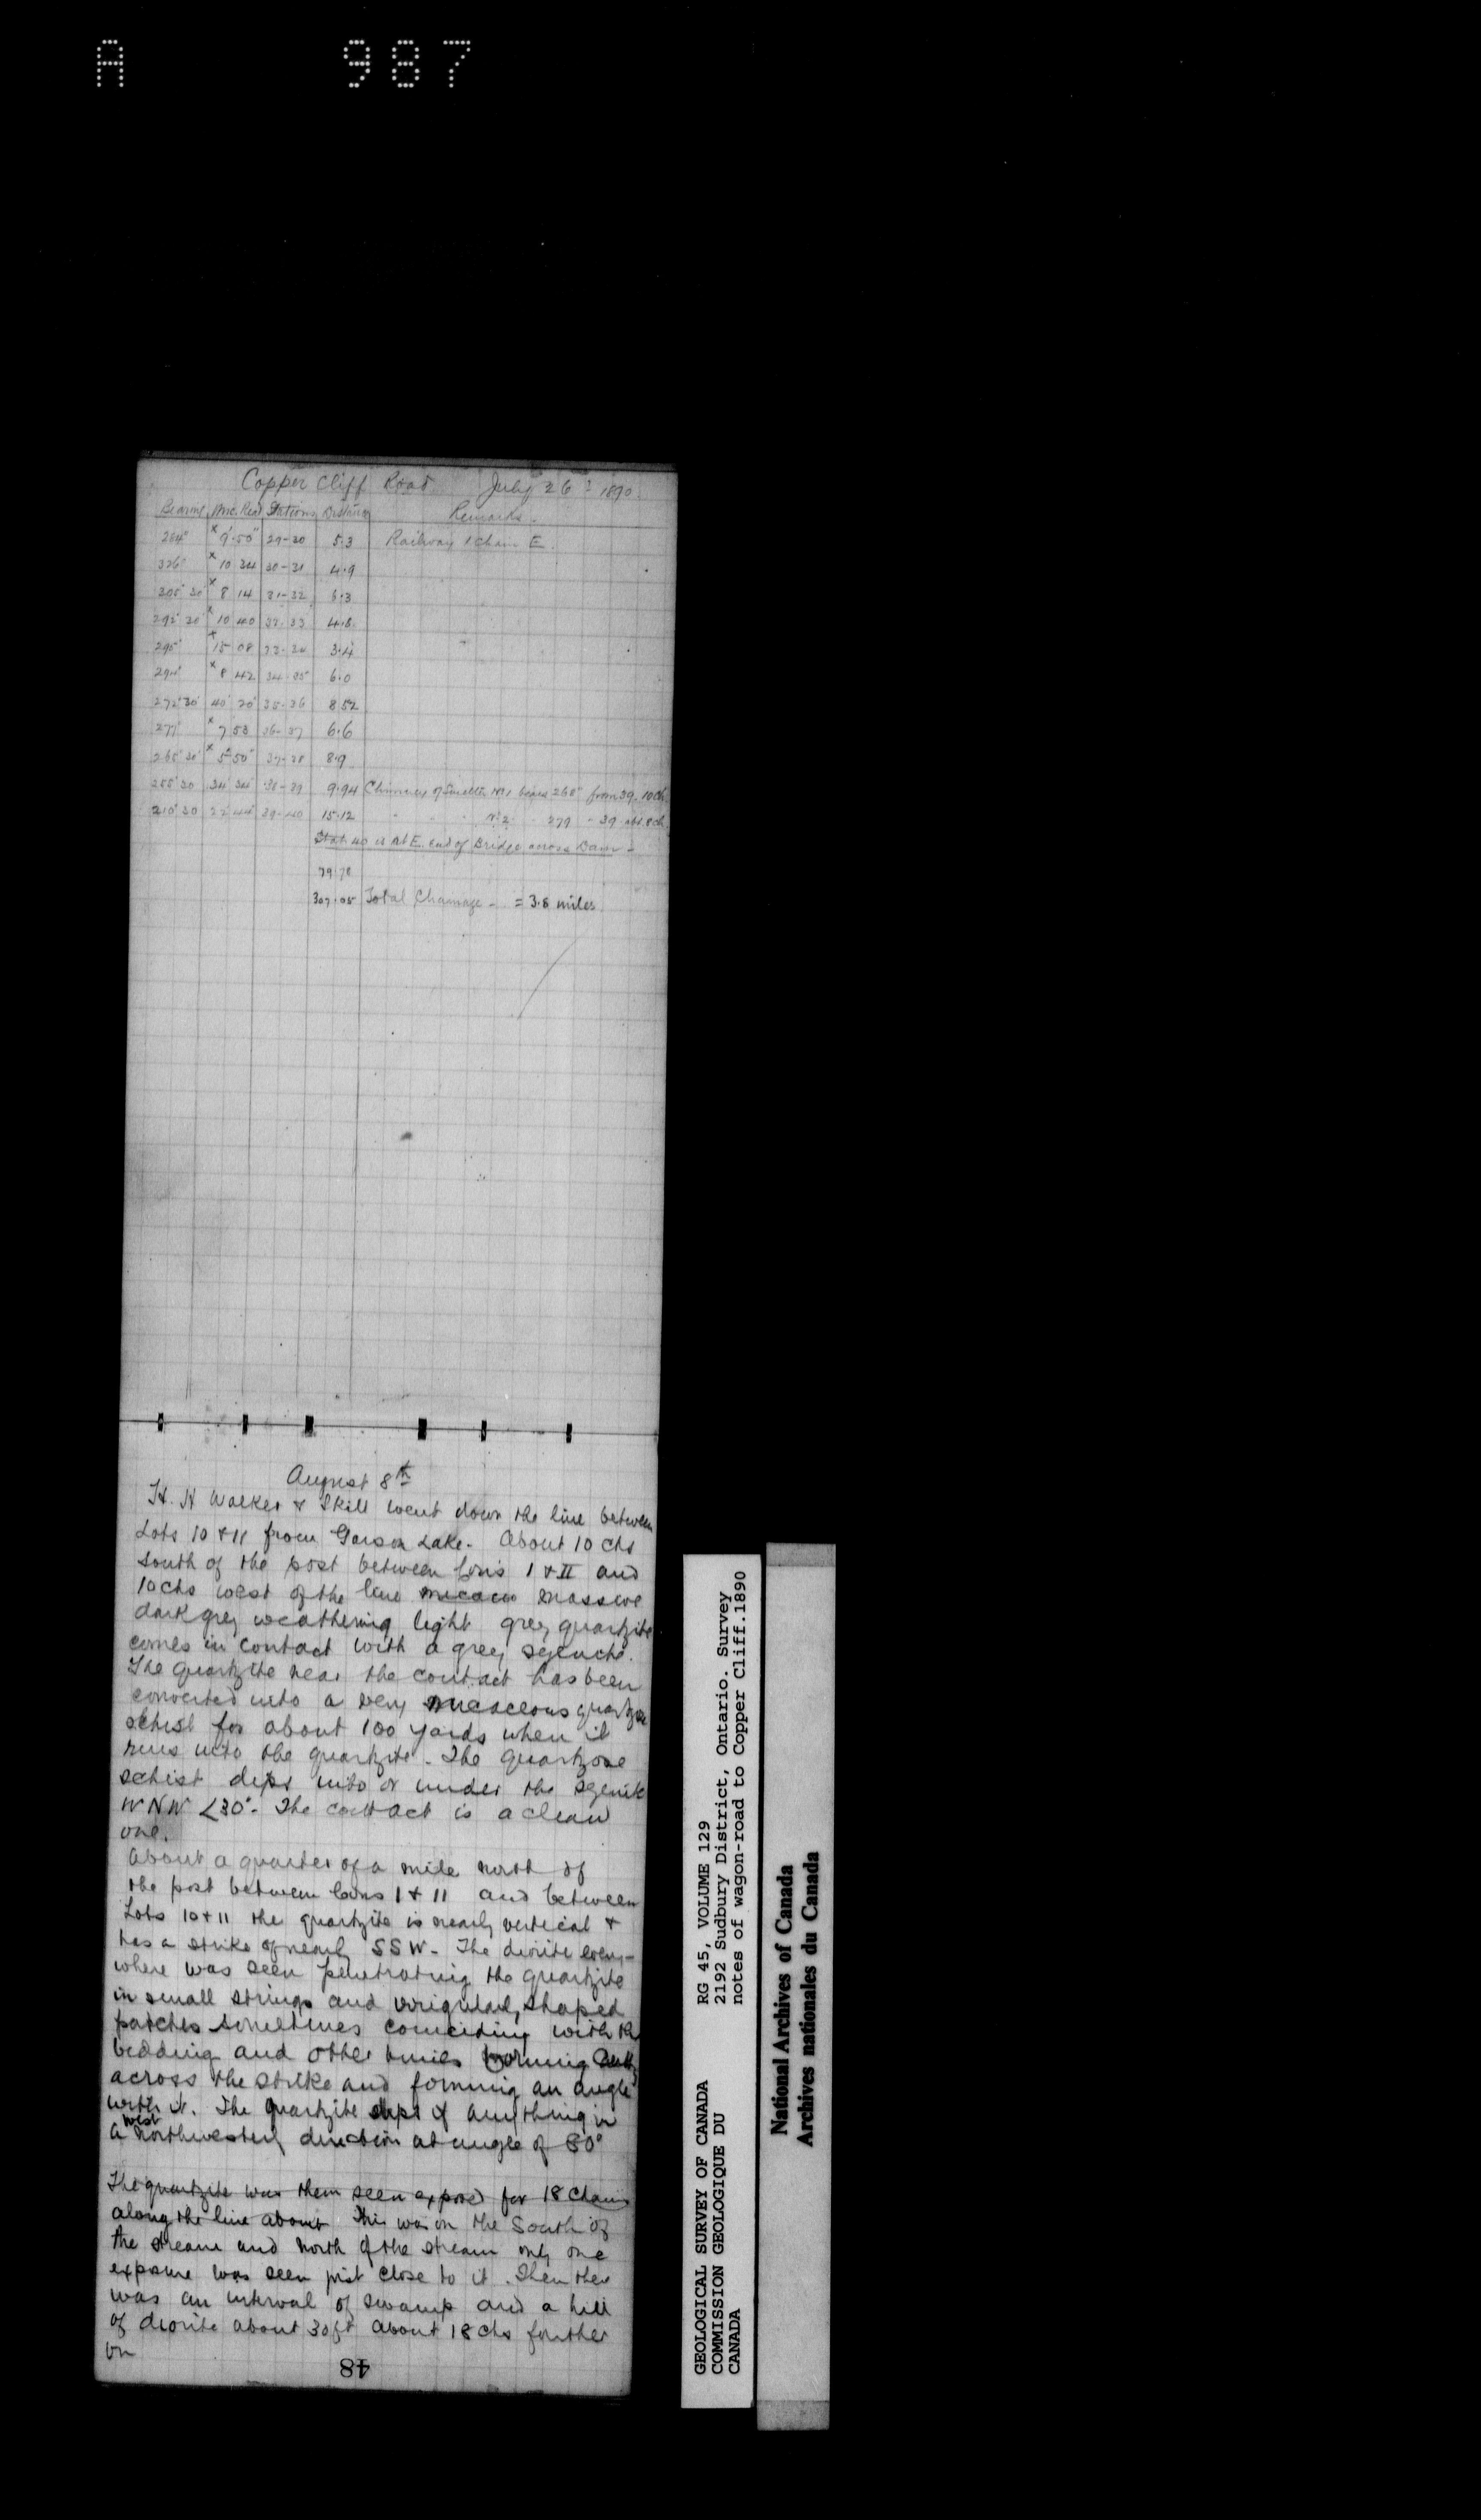 A 987
Copper Cliff Road July 26th 1890.
Bearing Mic. Read Stations Distance Remarks -
264° x 9' 50" 29-30 5.3 Railway 1 chain E.
326° x 10 34 30-31 4.9
305° 30' x 8 14 31-32 6.3
292° 30' x 10 40 32-33 4.8
295° x 15 08 33-34 3.4
294° x 8 42 34-35 6.0
272° 30' 40' 20" 35-36 8.52
277° x 7 53 36-37 6.6
265° 30' x 5' 50" 37-38 8.9
255° 30 34' 34" 38-39 9.94 Chimney of Smelter No 1 bears 268° from 39. 10 ch
210° 30 22' 44" 39-40 15.12 " " " No 2 " 279 " 39 abt 8 ch
Stat. 40 is at E. end of Bridge across Dam -
79.78
307.05 Total Chainage - = 3.8 miles.
August 8th
H. H Walker & Skill went down the line between
Lots 10 & 11 from Garson Lake. About 10 chs
south of the post between Cons I & II and
10 chs west of the line massive
dark grey weathering light grey quartzite
comes in contact with a grey syenite.
The quartzite near the contact has been
converted into a very micaceous quartzose
schist for about 100 yards when it
runs into the quartzite. The quartzose
schist dips into or under the syenite
WNW <30°. The contact is a clean
one.
About a quarter of a mile north of
the post between Cons I & II and between
Lots 10 & 11 the quartzite is nearly vertical &
has a strike of nearly SSW - The diorite every-
where was seen penetrating the quartzite
in small strings and irregularly shaped
patches sometimes coinciding with the
bedding and other times
across the strike and forming an angle
with it. The quartzite dips if anything in
a west northwesterly direction at angle of 80°
The quartzite was then seen exposed for 18 chains
along the line about This was on the South of
the stream and north of the stream only one
exposure was seen just close to it. Then there
was an interval of swamp and a hill
of diorite about 30 ft about 18 chs further
on
48
GEOLOGICAL SURVEY OF CANADA RG 45, VOLUME 129
COMMISSION GEOLOGIQUE DU 2192 Sudbury District, Ontario. Survey
CANADA notes of wagon-road to Copper Cliff.1890
National Archives of Canada
Archives nationales du Canada